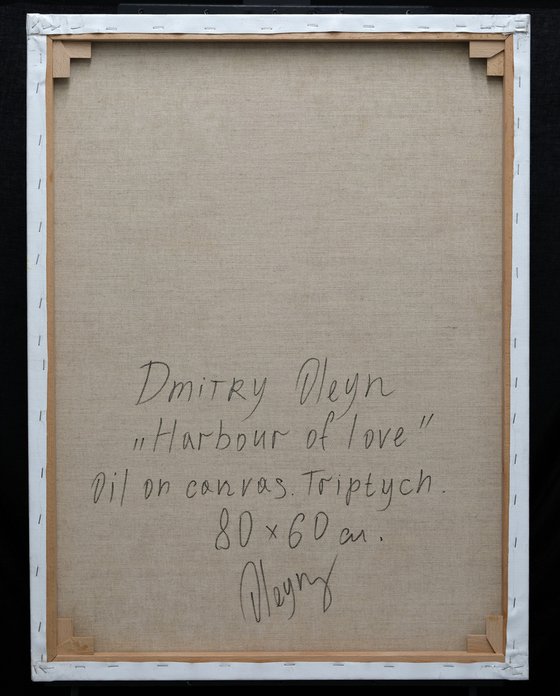 Dmitry Oleyn
„Harbour of love”
Oil on canvas. Triptych.
80 × 60 см.
Oleyn